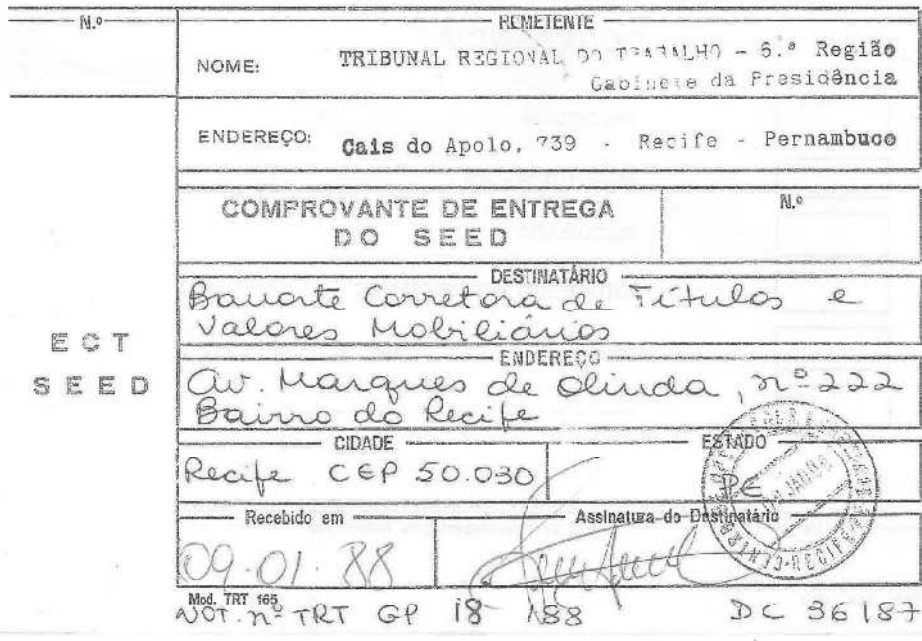 N.º
REMETENTE
NOME: TRIBUNAL REGIONAL DO TRABALHO - 6.ª Região
Gabinete da Presidência
ENDEREÇO: Cais do Apolo, 739 - Recife - Pernambuco
COMPROVANTE DE ENTREGA
DO SEED
N.º
DESTINATÁRIO
Banorte Corretora de Títulos e
Valores Mobiliários
ECT
SEED
ENDEREÇO
Av. Marques de Olinda, nº 222
Bairro do Recife
CIDADE
ESTADO
Recife CEP 50.030
PE
Recebido em
Assinatura do Destinatário
09.01.88
Mod. TRT 165
NOT. nº TRT GP 18 /88 DC 36/87